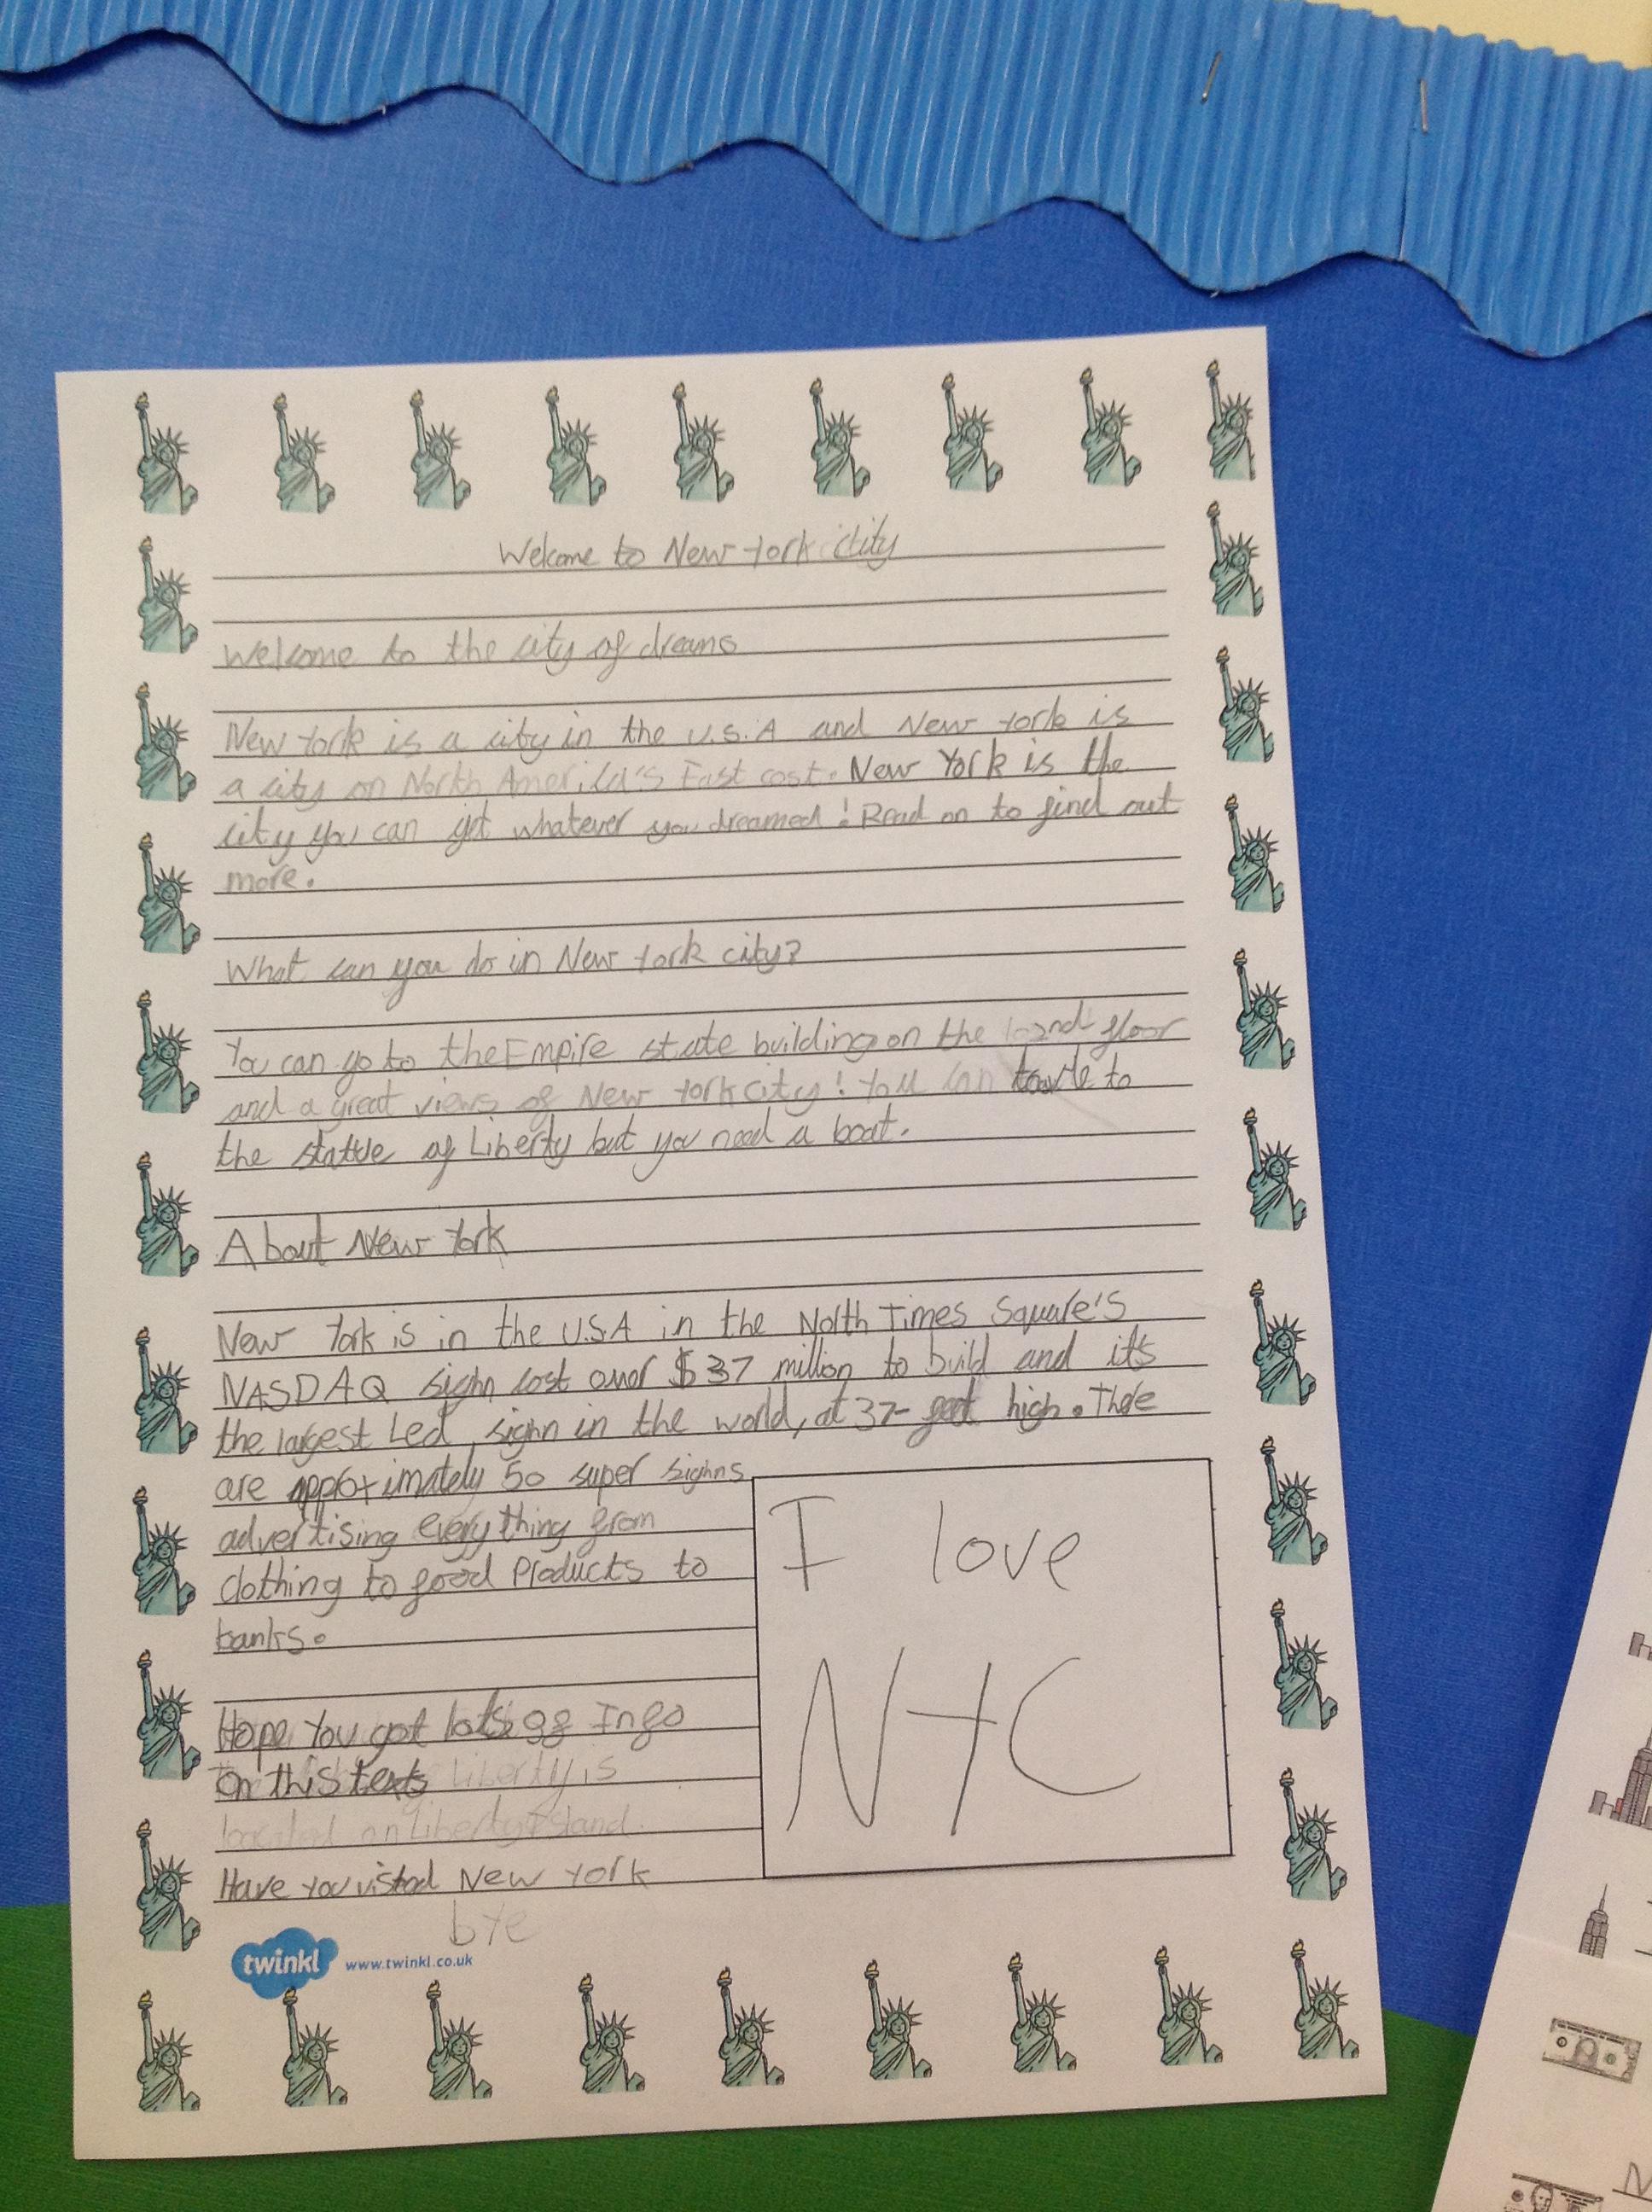 Welcome to New York city
Welcome to the city of dreams
New York is a city in the U.S.A and New York is
a city on North America's East cost. New York is the
city you can get whatever you dreamed! Read on to find out
more.
What can you do in New York city?
You can go to the Empire state building on the 102nd floor
and a great views of New York city! You can travle to
the statue of Liberty but you need a boat.
About New York
New York is in the U.S.A in the North Times Square's
NASDAQ sighn cost over $37 million to build and it's
the largest Led sighn in the world, at 37- feet high. There
are approximately 50 super sighns
advertising everything from
clothing to food Products to
banks.
I love
NYC
Hope You got lots of Info
on this texts Liberty is
located on Liberty Island.
Have you visted New York
bye
twinkl www.twinkl.co.uk